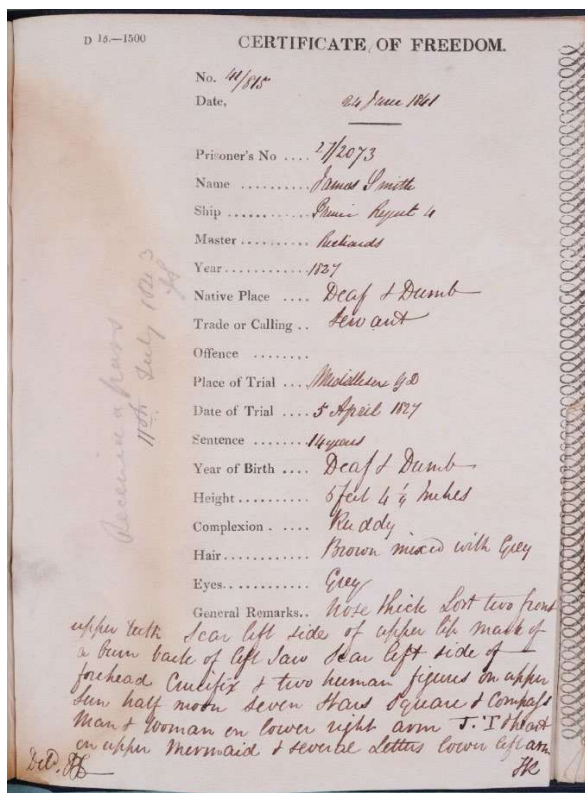 D 15.—1500
CERTIFICATE OF FREEDOM.
No. 41/815
Date, 24 June 1841
Prisoner's No .... 27/2073
Name .......... James Smith
Ship ............ Regent 4
Master .......... Richards
Year ............ 1827
Native Place .... Deaf & Dumb
Trade or Calling .. Servant
Offence ........
Place of Trial .... Middlesex G D
Date of Trial .... 5 April 1827
Sentence ........ 14 years
Year of Birth .... Deaf & Dumb
Height .......... 5 feet 4 1/4 Inches
Complexion ...... Ruddy
Hair ............ Brown mixed with Grey
Eyes ............ Grey
General Remarks.. Nose thick Lost two front
upper teeth Scar left side of upper lip mark of
a burn back of left Jaw Scar left side of
forehead Crucifix & two human figures on upper
Sun half moon Seven Stars Square & Compass
Man & Woman on lower right arm J.T & heart
on upper Mermaid & several Letters lower left arm
11th July 1843